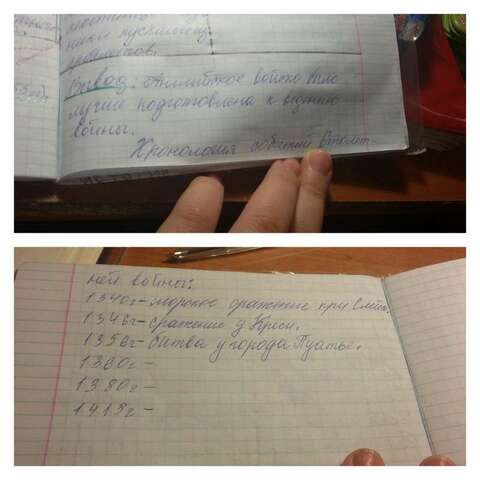 ники
Вывод: Английское войско было
лучше подготовлена к ведению
войны.
Хронология событий Столет-
ней войны:
1340г-морское сражение при Слейсе.
1346г-сражение у Креси.
1356г-битва у города Пуатье.
1360г-
1380г-
1415г-